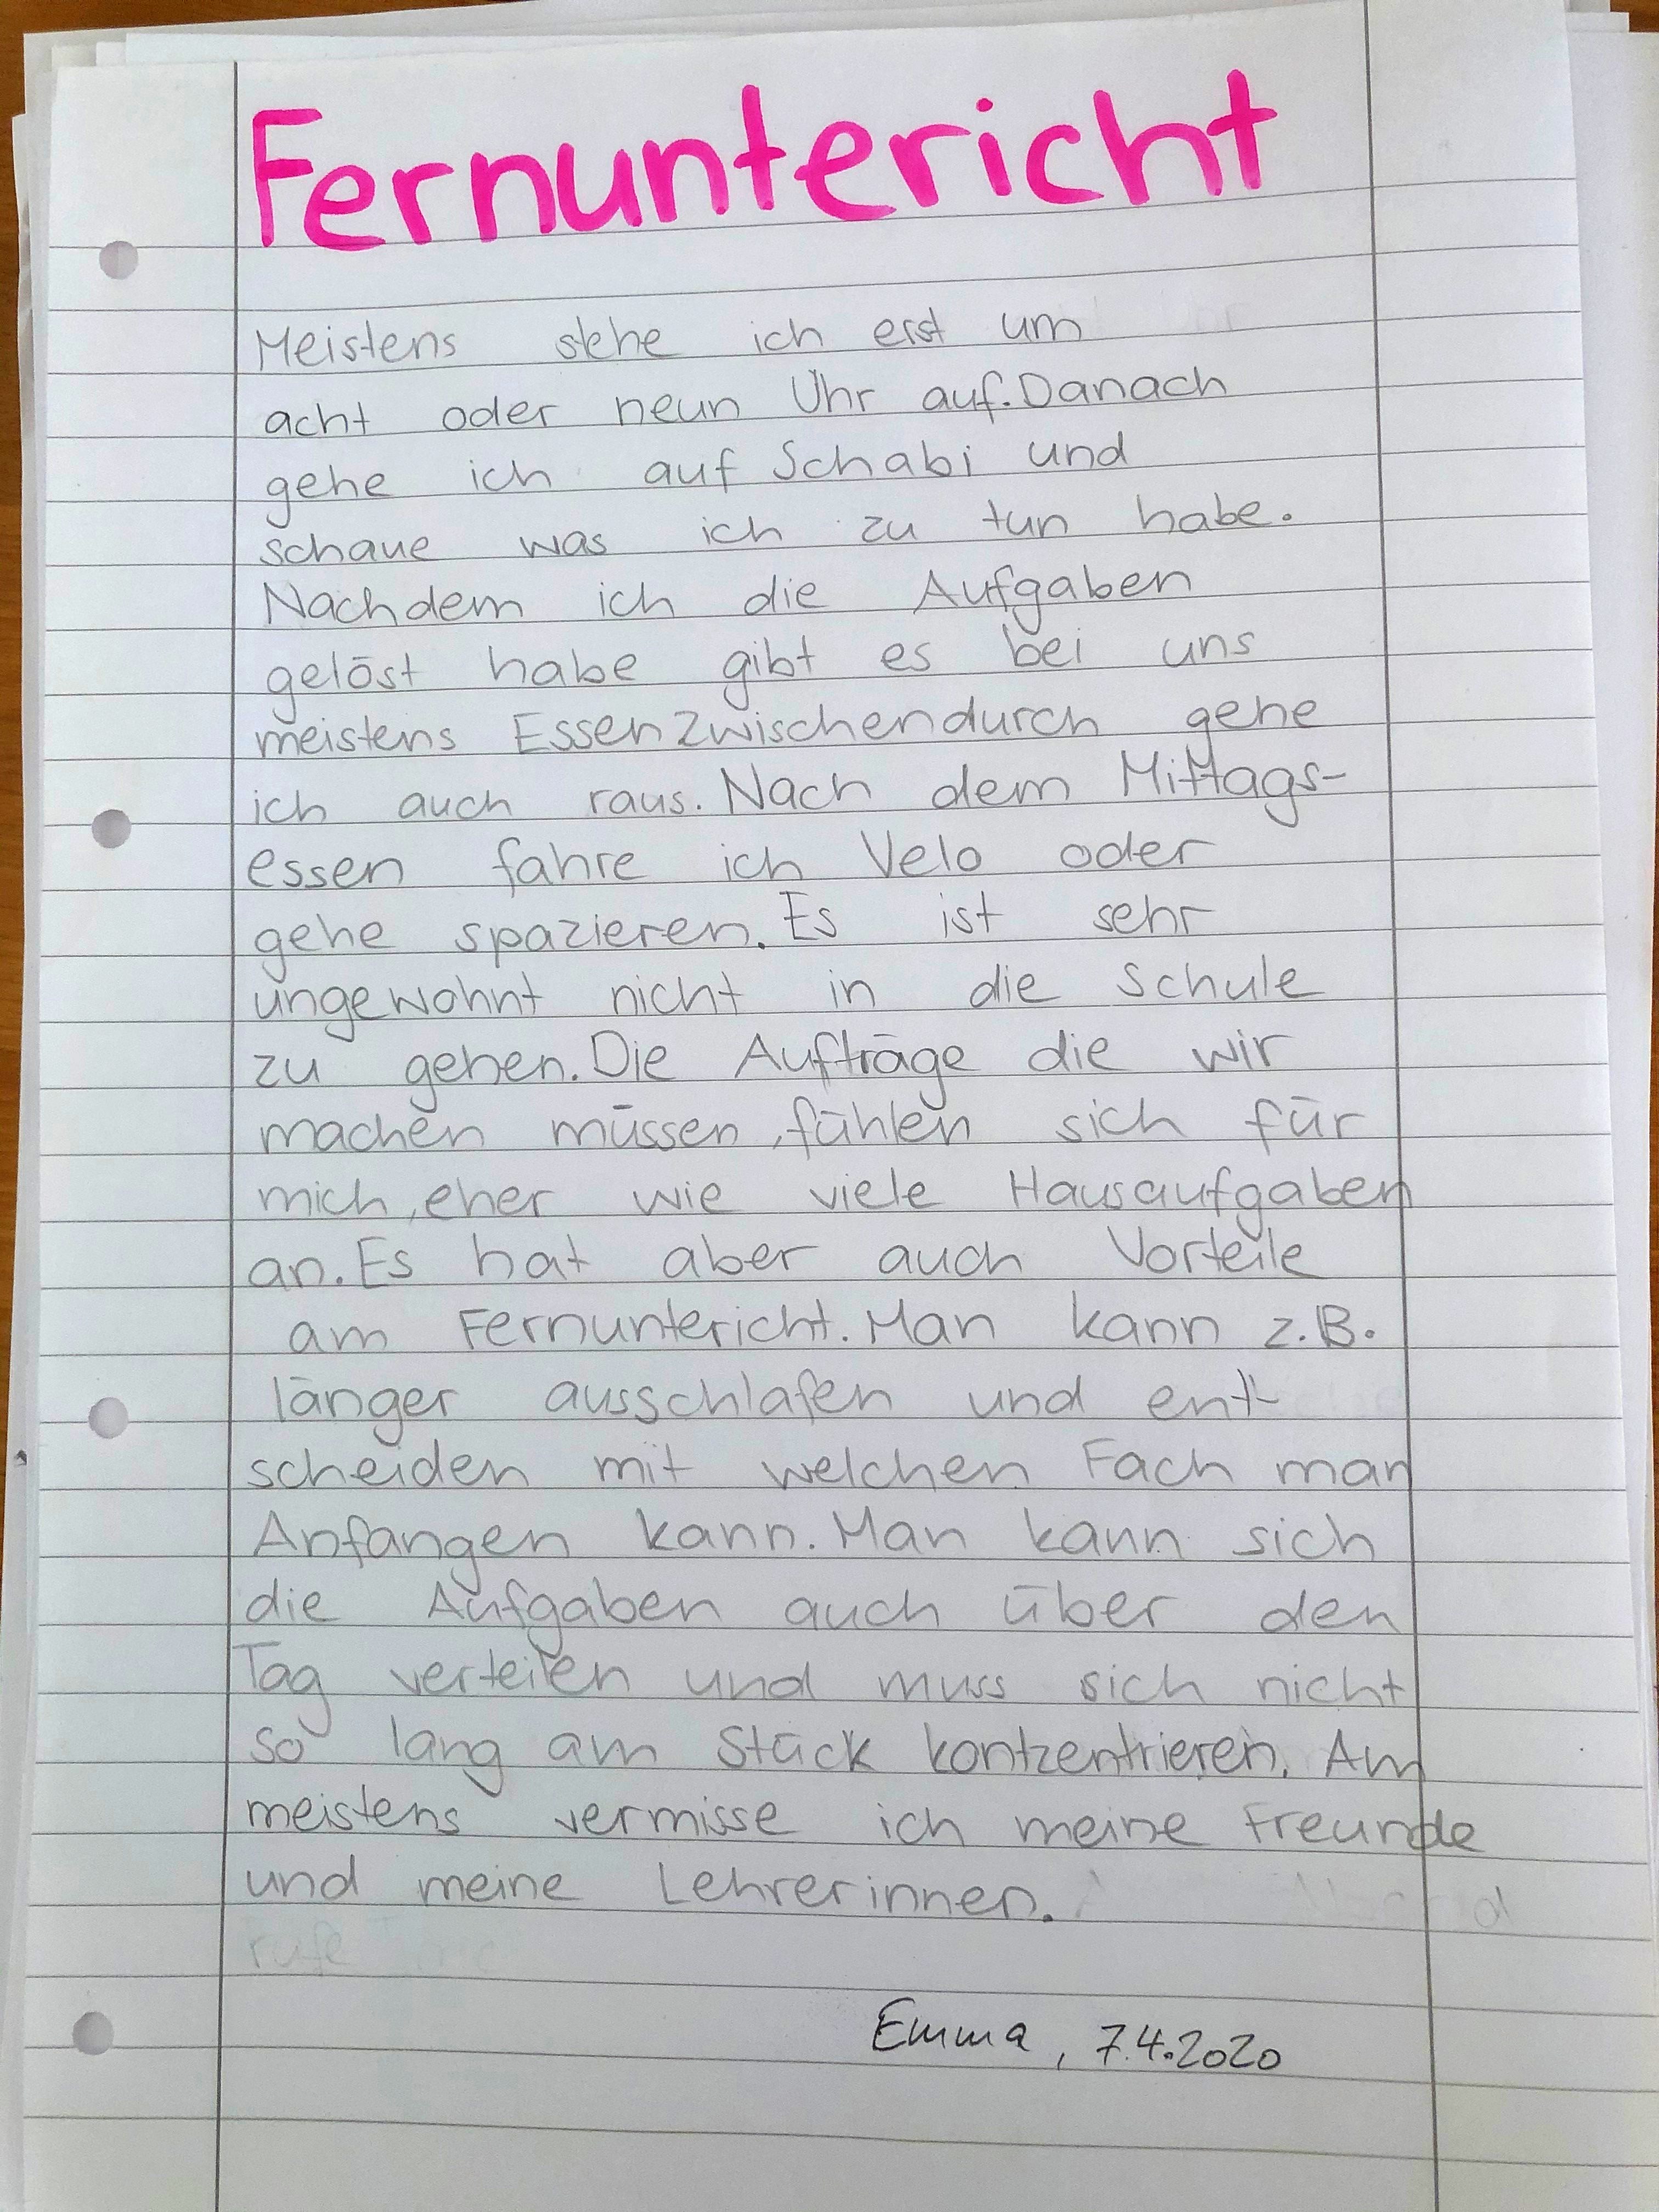 Fernuntericht
Meistens stehe ich erst um
acht oder neun Uhr auf. Danach
gehe ich auf Schabi und
schaue was ich zu tun habe.
Nachdem ich die Aufgaben
gelöst habe gibt es bei uns
meistens Essen Zwischendurch gehe
ich auch raus. Nach dem Mittags-
essen fahre ich Velo oder
gehe spazieren. Es ist sehr
ungewohnt nicht in die Schule
zu gehen. Die Aufträge die wir
machen müssen, fühlen sich für
mich, eher wie viele Hausaufgaben
an. Es hat aber auch Vorteile
am Fernuntericht. Man kann z.B.
länger ausschlafen und ent-
scheiden mit welchen Fach man
Anfangen kann. Man kann sich
die Aufgaben auch über den
Tag verteilen und muss sich nicht
so lang am Stück kontzentrieren. Am
meistens vermisse ich meine Freunde
und meine Lehrerinnen.
rufe
Emma, 7.4.2020